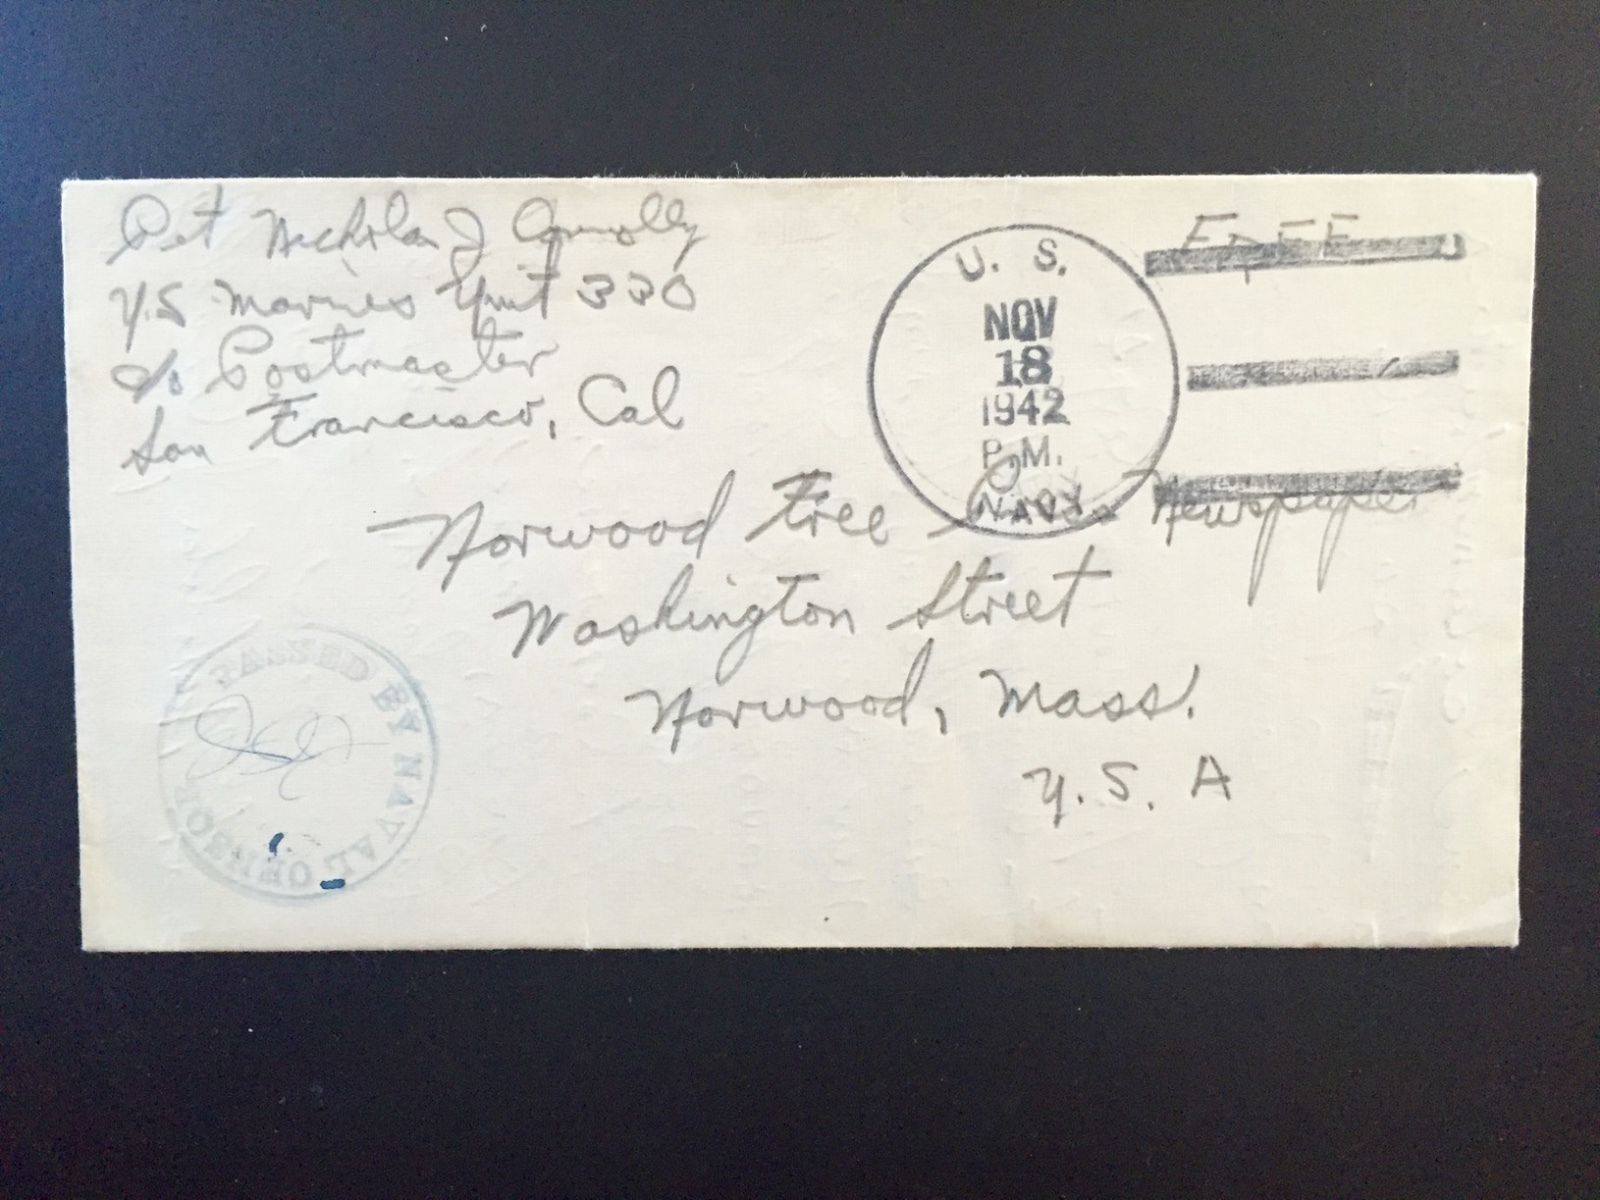 Pvt Nicholas J Connolly
U.S. Marines Unit 330
c/o Postmaster
San Francisco, Cal
U. S.
NOV
18
1942
P.M.
NAVY
FREE
Norwood Free Press Newspaper
Washington Street
Norwood, Mass.
U. S. A
PASSED BY NAVAL CENSOR